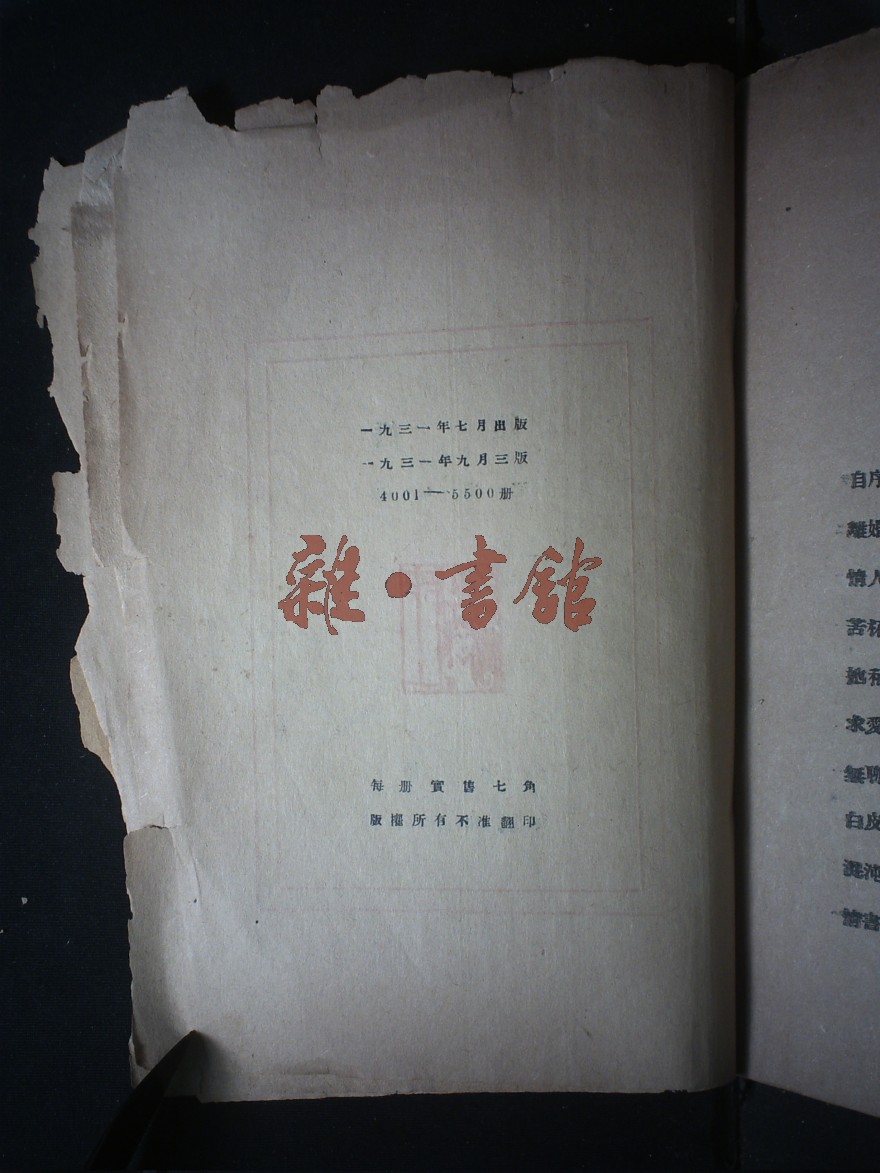 一九三一年七月出版
一九三一年九月三版
4001—5500册
雜·書館
每册實售七角
版權所有不准翻印
自序
離婚
情人
苦
她
求愛
無聊
白皮
混沌
情書